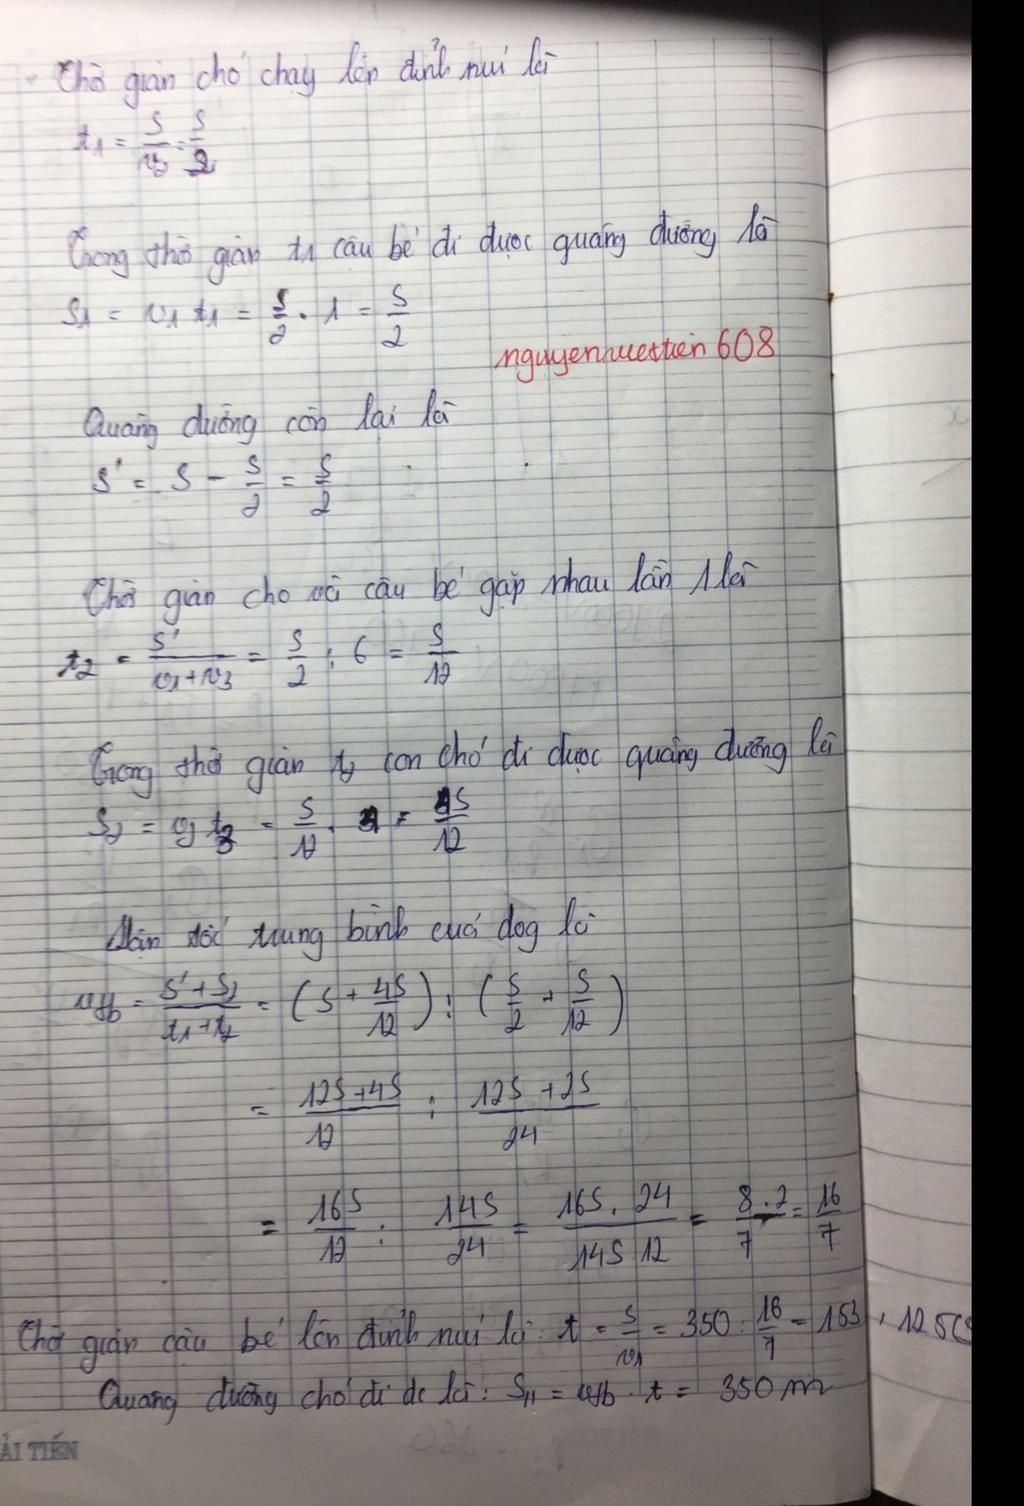 Thời gian chó chạy lên đỉnh núi là
t1 = S/v2 = S/2
Trong thời gian t1 cậu bé đi được quãng đường là
S1 = v1 t1 = S/2 . 1 = S/2
nguyenvietien608
Quãng đường còn lại là
S' = S - S/2 = S/2
Thời gian chó và cậu bé gặp nhau lần 1 là
t2 = S'/(v1+v3) = S/2 : 6 = S/12
Trong thời gian t2 con chó đi được quãng đường là
= S/12 . = 4S/12
Vận tốc trung bình của dog là
vtb = (S'+S2)/(t1+t2) = (S + 4S/12) : (S/2 + S/12)
= (12S+4S)/12 : (12S+2S)/24
= 16S/12 : 14S/24 = 16S . 24/14S 12 = 8.2/7 = 16/7
Thời gian cậu bé lên đỉnh núi là: t = S/v1 = 350 : 16/7 = 153,125(s
Quãng đường chó đi đc là: = vtb . t = 350 m
ẢI TIẾN